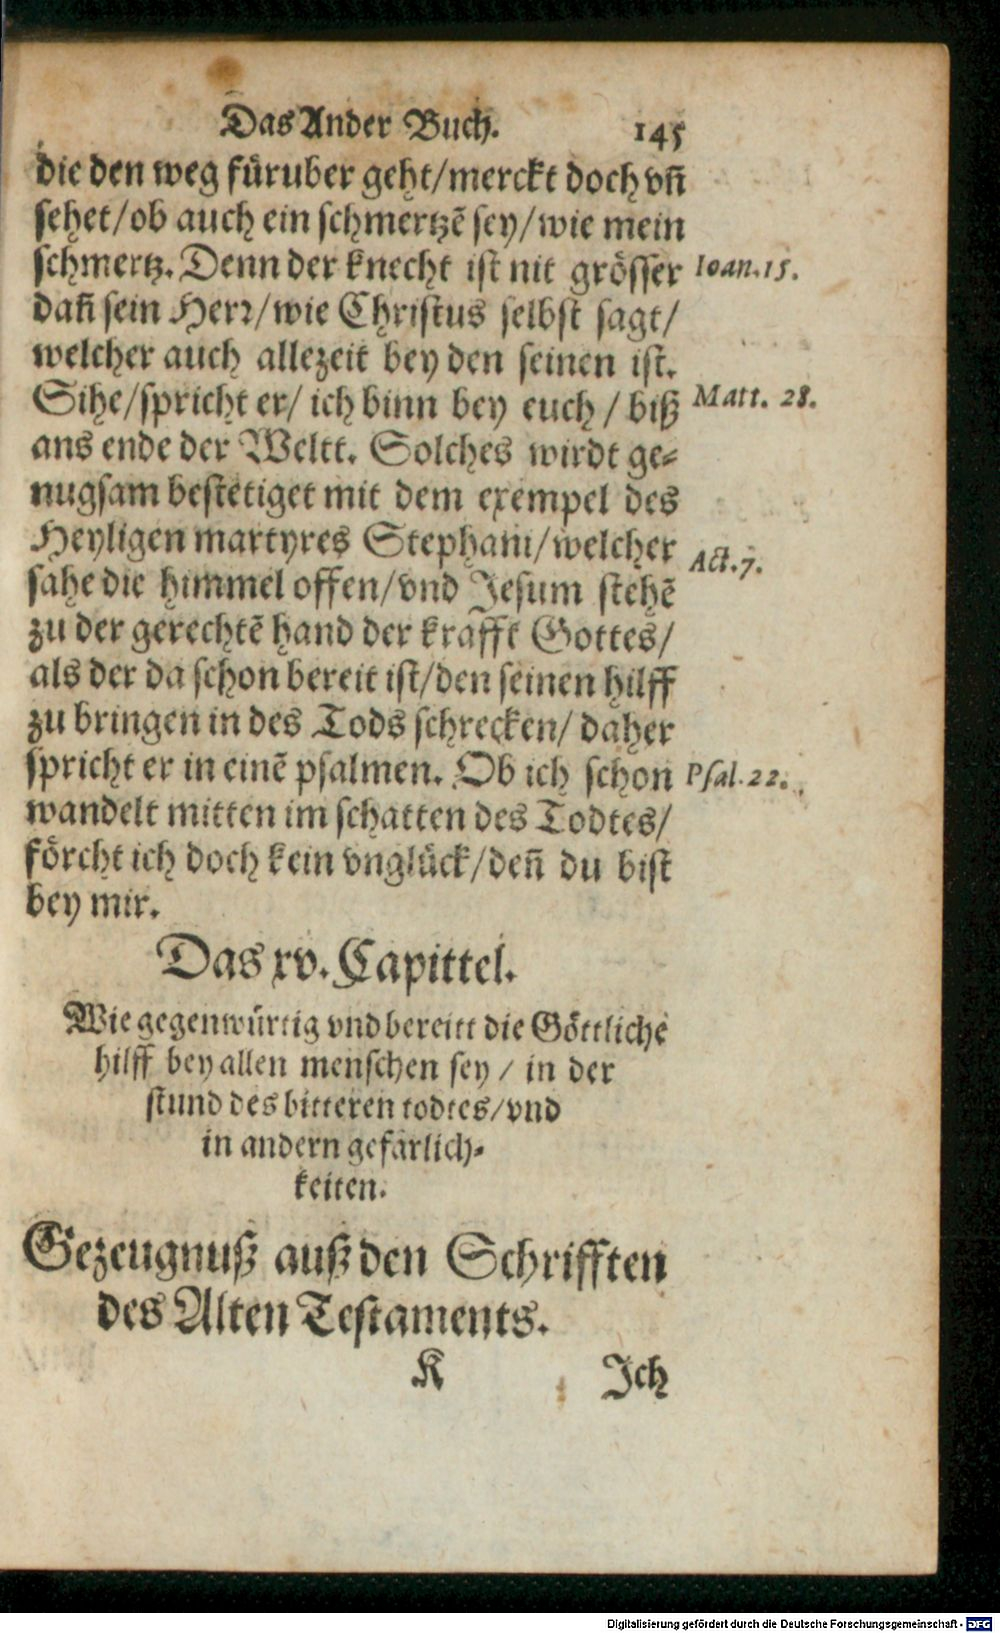 Das Ander Buch. 145
die den weg fůruber geht/merckt doch vñ
sehet/ob auch ein schmertzẽ sey/wie mein
schmertz. Denn der knecht ist nit grösser Ioan.15.
dañ sein Herr/wie Christus selbst sagt/
welcher auch allezeit bey den seinen ist.
Sihe/spricht er/ ich binn bey euch / biß Matt. 28.
ans ende der Weltt. Solches wirdt ge-
nugsam bestetiget mit dem exempel des
Heyligen martyres Stephani/welcher Act.7.
sahe die himmel offen/vnd Jesum stehẽ
zu der gerechtẽ hand der krafft Gottes/
als der da schon bereit ist/den seinen hilff
zu bringen in des Tods schrecken/ daher
spricht er in einẽ psalmen. Ob ich schon Psal.22.
wandelt mitten im schatten des Todtes/
förcht ich doch kein vnglůck/deñ du bist
bey mir.
Das xv. Capittel.
Wie gegenwůrtig vnd bereitt die Göttliche
hilff bey allen menschen sey / in der
stund des bitteren todtes/vnd
in andern gefärlich-
keiten.
Gezeugnuß auß den Schrifften
des Alten Testaments.
K Ich
Digitalisierung gefördert durch die Deutsche Forschungsgemeinschaft - DFG